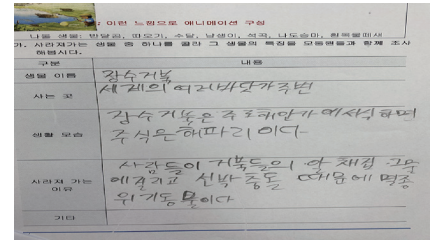 이런 느낌으로 애니메이션 구성
나돌 생물: 반달곰, 따오기, 수달, 남생이, 석곡, 나도승마, 흰목물떼새
가. 사라져가는 생물 중 하나를 골라 그 생물의 특징을 모둠원들과 함께 조사
해봅시다.
구분 내용
생물 이름 장수거북
사는 곳 세계의 여러바닷가주변
생활 모습 장수거북은 주로해안가에서식하면
주식은해파리이다
사라져 가는 이유 사람들이 거북들의 알채집 그물
에걸리고 선박충돌 때문에 멸종
위기동물이다
기타